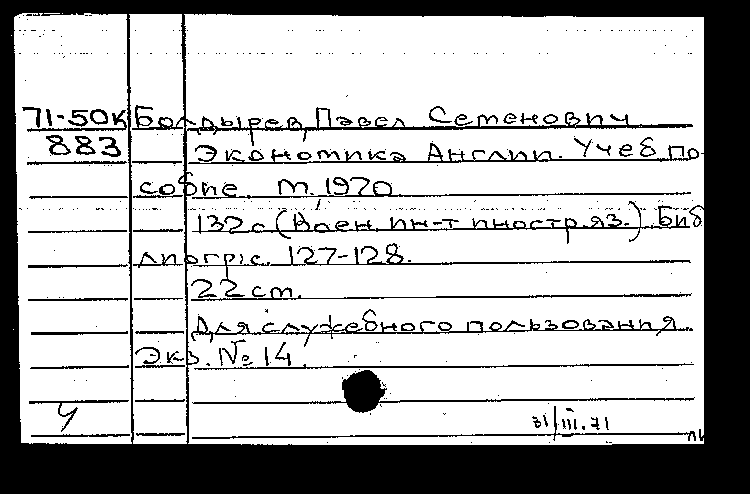 71-50к Болдырев, Павел Семенович
883 Экономика Англии. Учеб. по-
собие. М., 1970.
132 с (Воен. ин-т иностр. яз.) Биб
лиогр: с. 127-128.
22 cm.
Для служебного пользования
Экз. № 14.
31/III.71